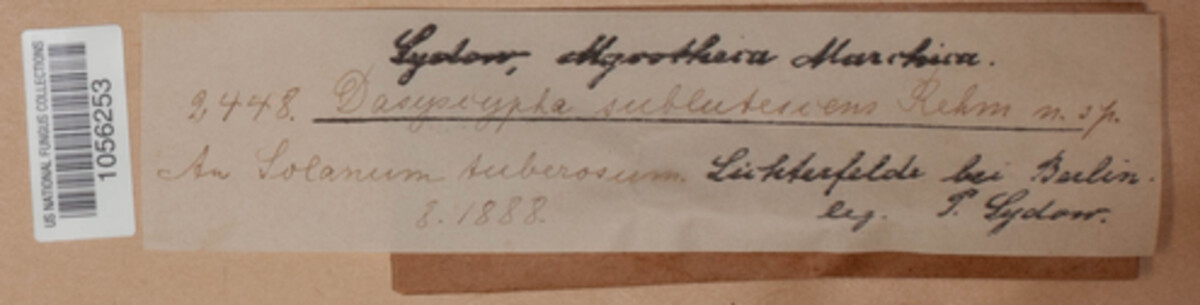 US NATIONAL FUNGUS COLLECTIONS
1056253
Sydow, Mycotheca Marchica.
2,448. Dasyscypha sublutescens Rehm n. sp.
An Solanum tuberosum. Lichterfelde bei Berlin.
8. 1888. leg. P. Sydow.